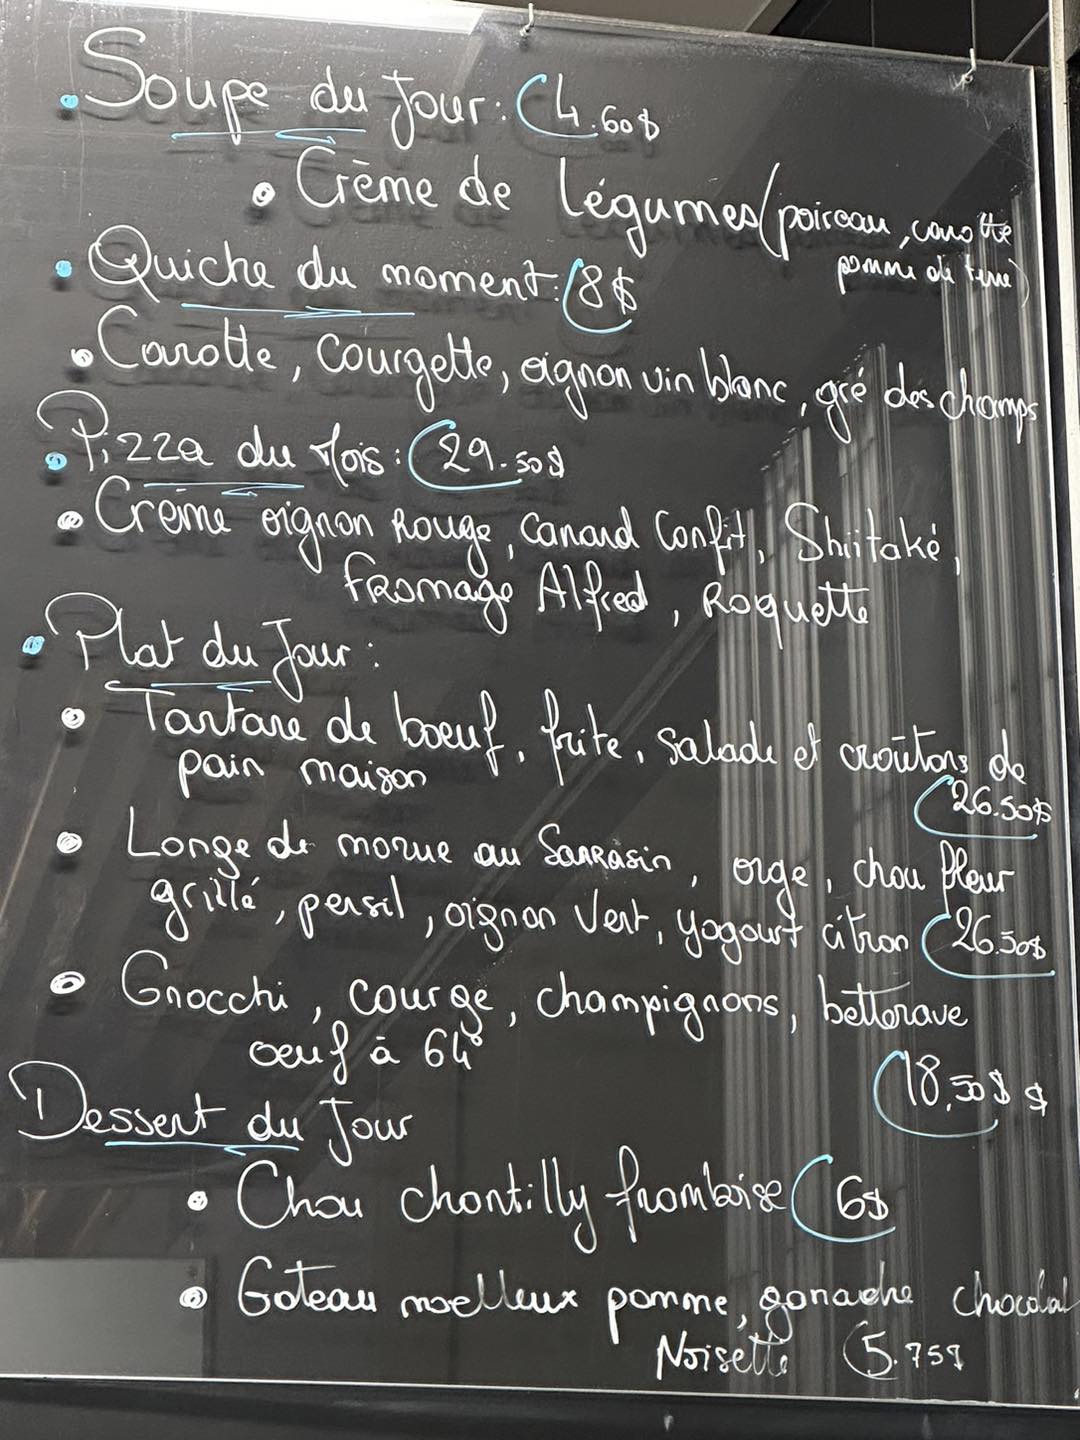 Soupe du Jour: 4.60$
Crème de Légumes (poireau, carotte
pomme de terre)
Quiche du moment: 8$
Carotte, Courgette, oignon vin blanc, gré des champs
Pizza du Mois: 29.50$
Crème oignon Rouge, Canard Confit, Shiitaké,
Fromage Alfred, Roquette
Plat du Jour:
Tartare de boeuf, frite, salade et croûtons de
pain maison
26.50$
Longe de morue au Sarrasin, orge, chou fleur
grillé, persil, oignon Vert, yogourt citron 26.50$
Gnocchi, courge, champignons, betterave
oeuf à 64°
18,50$ $
Dessert du Jour
Chou chantilly framboise 6$
Gateau moelleux pomme, ganache chocolat
Noisette 5.75$